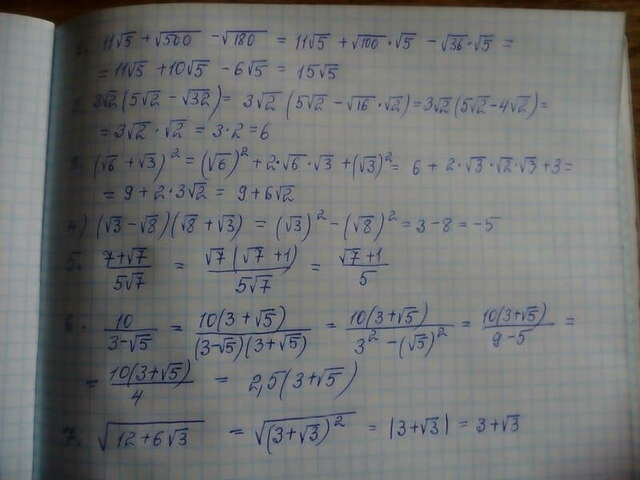 1. 11√5 + √500 - √180 = 11√5 + √100 · √5 - √36 · √5 =
= 11√5 + 10√5 - 6√5 = 15√5
2. 3√2 (5√2 - √32) = 3√2 (5√2 - √16 · √2) = 3√2 (5√2 - 4√2) =
= 3√2 · √2 = 3 · 2 = 6
3. (√6 + √3)² = (√6)² + 2 · √6 · √3 + (√3)² = 6 + 2 · √3 · √2 · √3 + 3 =
= 9 + 2 · 3√2 = 9 + 6√2
4) (√3 - √8)(√8 + √3) = (√3)² - (√8)² = 3 - 8 = -5
5. (7+√7)/(5√7) = (√7(√7+1))/(5√7) = (√7+1)/5
6. 10/(3-√5) = (10(3+√5))/((3-√5)(3+√5)) = (10(3+√5))/(3²-(√5)²) = (10(3+√5))/(9-5) =
= (10(3+√5))/4 = 2,5(3+√5)
7. √(12+6√3) = √((3+√3)²) = |3+√3| = 3+√3